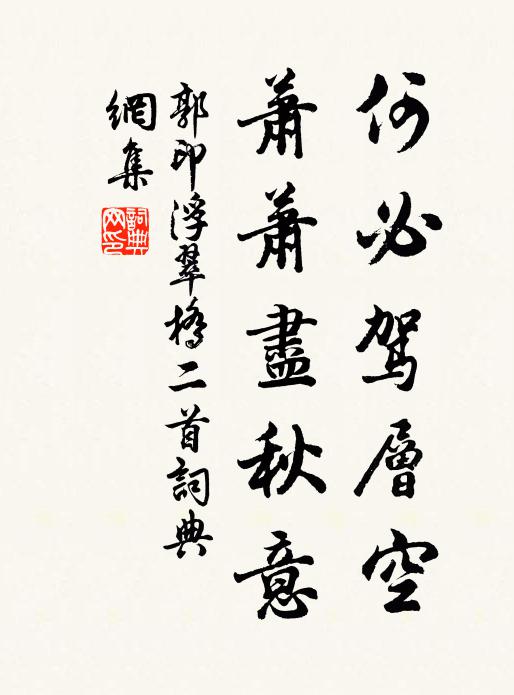 何必駕層空
蕭蕭盡秋意
郭印浮翠橋二首詞典
網集
詞典网印